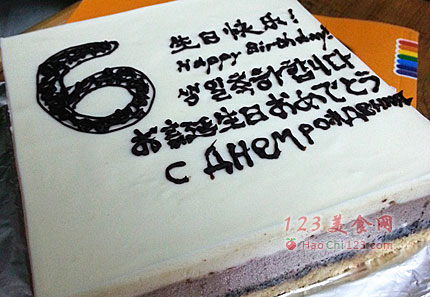 6
生日快乐!
Happy Birthday!
생일축하합니다
お誕生日おめでとう
С ДНЕМ РОЖДЕНИЯ
123美食网
HaoChi123.com